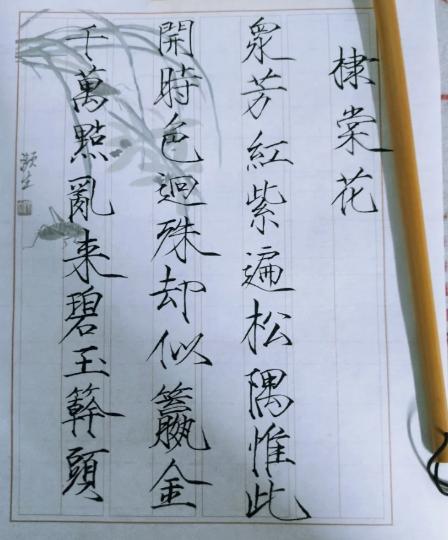 棣棠花
衆芳紅紫遍松隅惟此
開時色迥殊却似籯金
千萬點亂来碧玉簳頭
灝生